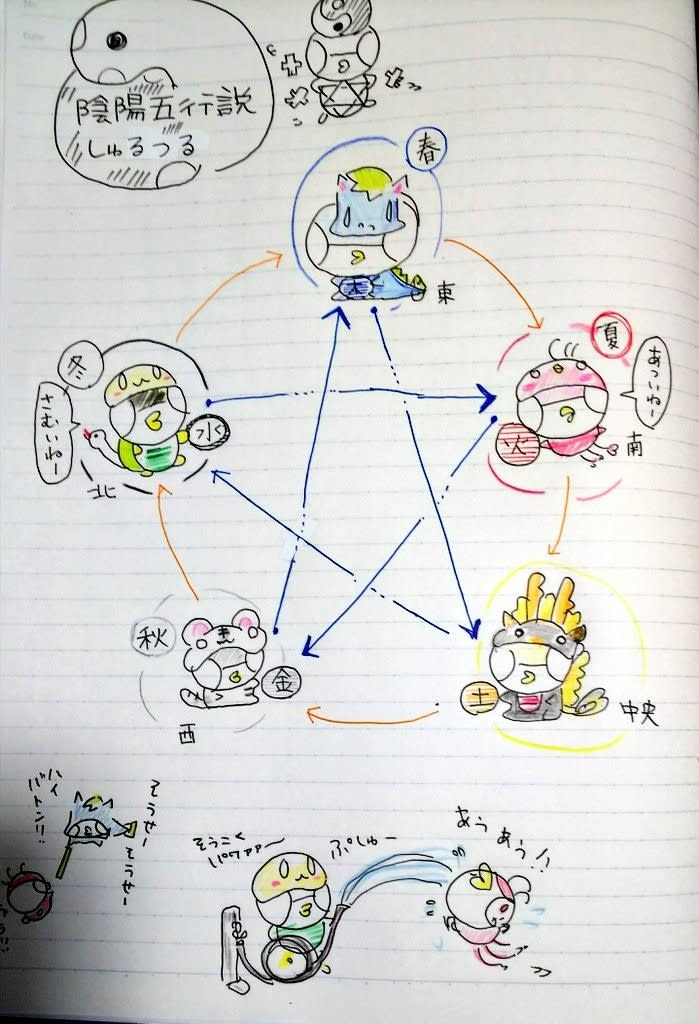 陰陽五行説
しゅるつる
春
木
東
夏
あついねー
火
南
冬
さむいねー
水
北
秋
金
西
土
中央
ハイ
バトン!!
そうせー
そうせー
そうこく
パワァァ〜
ぷしゅー
あぅ
あぅ!!